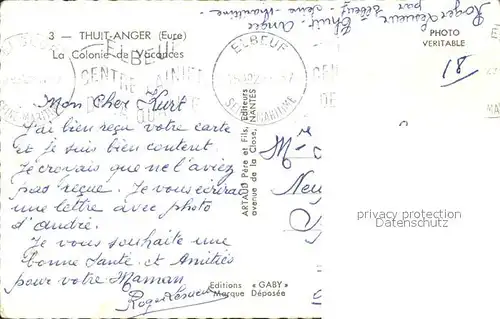 3 - THUIT-ANGER (Eure)
La Colonie de Vacances
ELBEUF
ELBEUF
SEINE MARITIME
CENTRE
Roger Lesueur
Thuit-Anger
par Elbeuf
Seine Maritime
PHOTO
VERITABLE
18
Mon Cher Kurt
J'ai bien reçu votre carte
et je suis bien content.
Je croyais que ne l'aviez
pas reçue. Je vous écrirai
une lettre avec photo
d'andré.
Je vous souhaite une
bonne Santé et Amitiés
pour votre Maman
Roger Lesueur
ARTAUD Père et Fils, Editeurs
avenue de la Close, NANTES
Editions « GABY »
Marque Déposée
privacy protection
Datenschutz